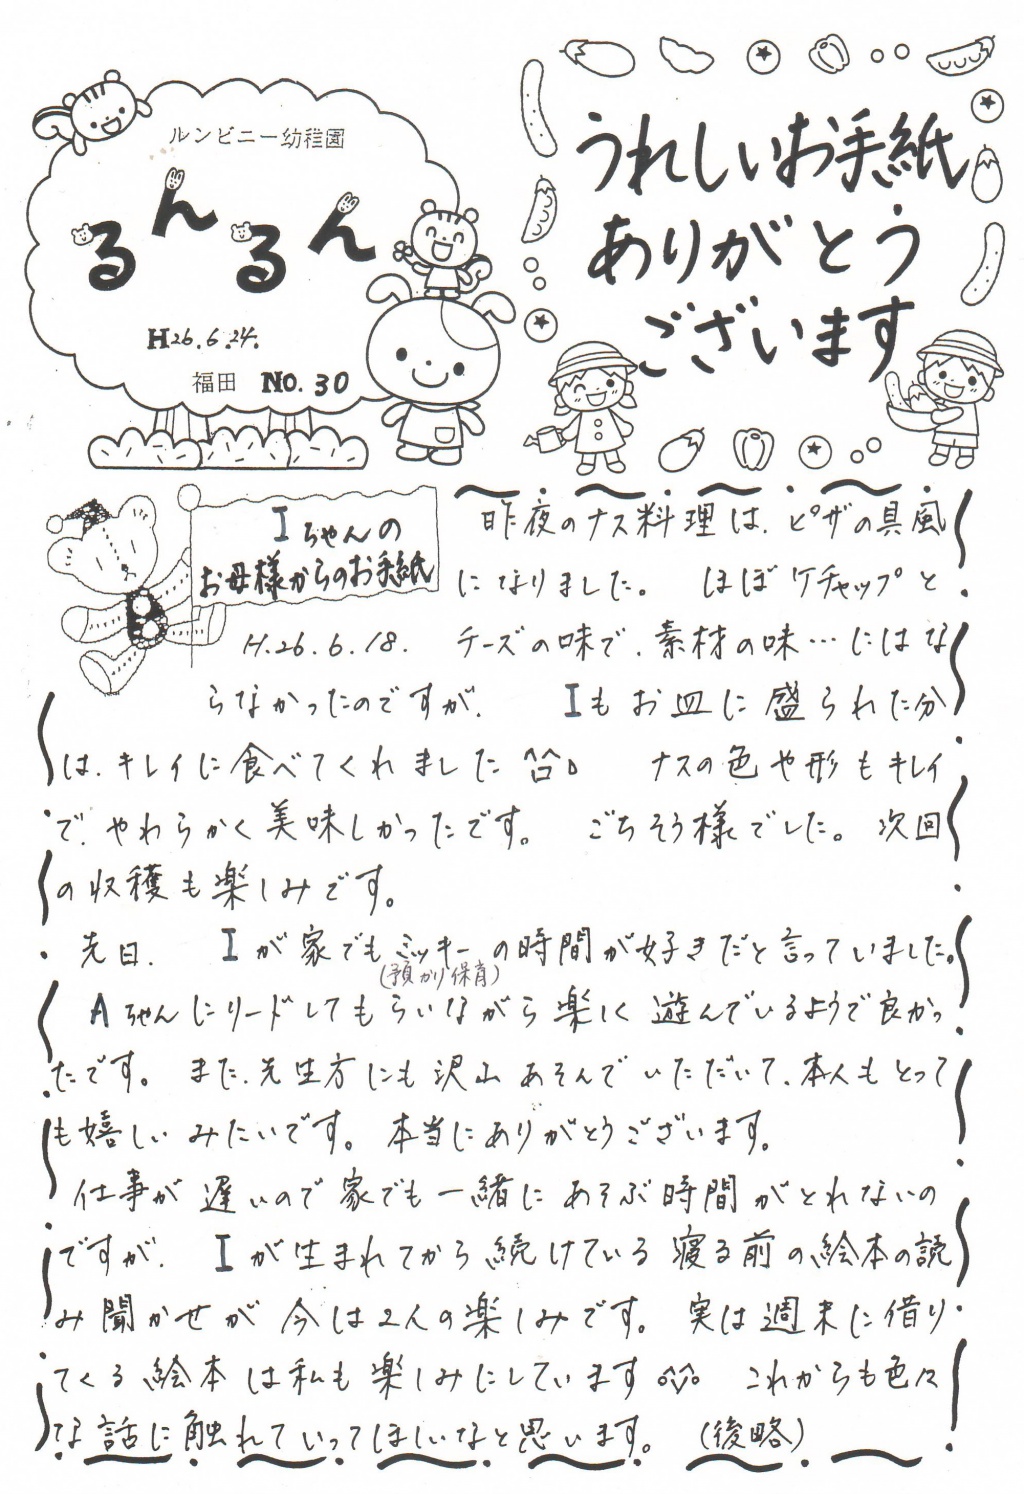 ルンビニー幼稚園
るんるん
H26.6.24.
福田 No.30
うれしいお手紙
ありがとう
ございます
Iちゃんの
お母様からのお手紙
H.26.6.18.
昨夜のナス料理は、ピザの具風
になりました。 ほぼケチャップと
チーズの味で、素材の味…にはな
らなかったのですが、 Iもお皿に盛られた分
は、キレイに食べてくれました^^。 ナスの色や形もキレイ
で、やわらかく美味しかったです。 ごちそう様でした。次回
の収穫も楽しみです。
先日、 Iが家でもミッキーの時間が好きだと言っていました。
(預かり保育)
Aちゃんにリードしてもらいながら楽しく遊んでいるようで良かっ
たです。 また、先生方にも沢山あそんでいただいて、本人もとって
も嬉しいみたいです。本当にありがとうございます。
仕事が遅いので家でも一緒にあそぶ時間がとれないの
ですが、 Iが生まれてから続けている寝る前の絵本の読
み聞かせが今は2人の楽しみです。 実は週末に借り
てくる絵本は私も楽しみにしています^^ これからも色々
な話に触れていってほしいなと思います。 (後略)